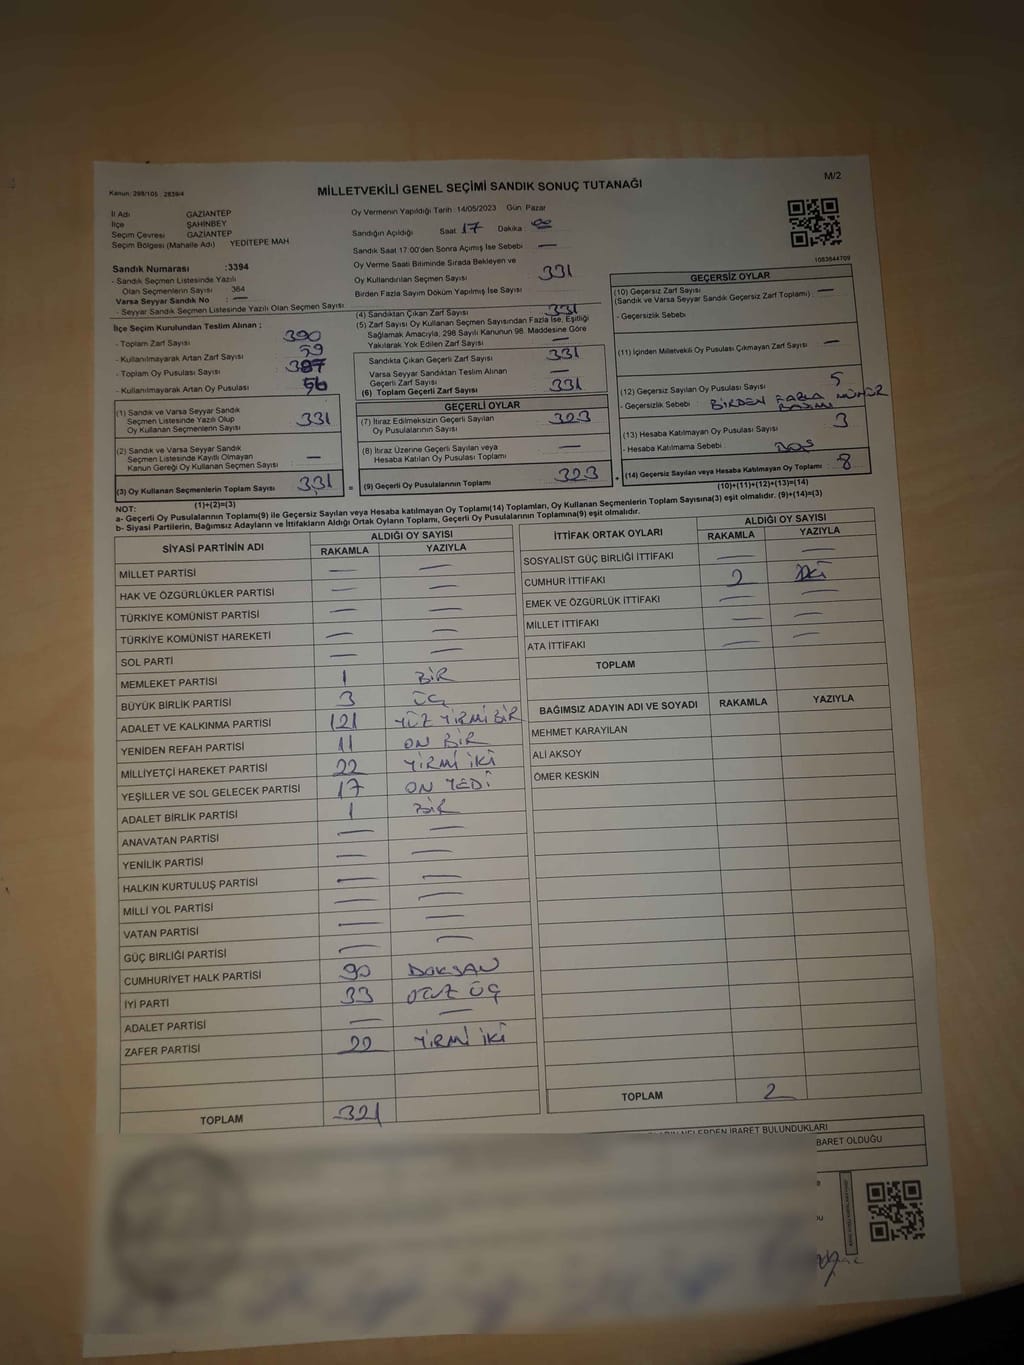 Kanun: 298/105 2839/4
MİLLETVEKİLİ GENEL SEÇİMİ SANDIK SONUÇ TUTANAĞI
M/2
İl Adı GAZİANTEP
İlçe ŞAHİNBEY
Seçim Çevresi GAZİANTEP
Seçim Bölgesi (Mahalle Adı) YEDİTEPE MAH
Sandık Numarası :3394
- Sandık Seçmen Listesinde Yazılı
Olan Seçmenlerin Sayısı 364
Varsa Seyyar Sandık No : —
- Seyyar Sandık Seçmen Listesinde Yazılı Olan Seçmen Sayısı
Oy Vermenin Yapıldığı Tarih :14/05/2023 Gün Pazar
Sandığın Açıldığı Saat 17 Dakika 00
Sandık Saat 17:00'den Sonra Açmış İse Sebebi —
Oy Verme Saati Bitiminde Sırada Bekleyen ve
Oy Kullandırılan Seçmen Sayısı 331
Birden Fazla Sayım Döküm Yapılmış İse Sayısı
1083844709
İlçe Seçim Kurulundan Teslim Alınan :
- Toplam Zarf Sayısı 390
- Kullanılmayarak Artan Zarf Sayısı 59
- Toplam Oy Pusulası Sayısı 387
- Kullanılmayarak Artan Oy Pusulası 56
(1) Sandık ve Varsa Seyyar Sandık
Seçmen Listesinde Yazılı Olup
Oy Kullanan Seçmenlerin Sayısı 331
(2) Sandık ve Varsa Seyyar Sandık
Seçmen Listesinde Kayıtlı Olmayan
Kanun Gereği Oy Kullanan Seçmen Sayısı —
(3) Oy Kullanan Seçmenlerin Toplam Sayısı 331
(1)+(2)=(3)
(4) Sandıktan Çıkan Zarf Sayısı 331
(5) Zarf Sayısı Oy Kullanan Seçmen Sayısından Fazla İse, Eşitliği
Sağlamak Amacıyla, 298 Sayılı Kanunun 98. Maddesine Göre
Yakılarak Yok Edilen Zarf Sayısı —
Sandıkta Çıkan Geçerli Zarf Sayısı 331
Varsa Seyyar Sandıktan Teslim Alınan
Geçerli Zarf Sayısı —
(6) Toplam Geçerli Zarf Sayısı 331
GEÇERLİ OYLAR
(7) İtiraz Edilmeksizin Geçerli Sayılan
Oy Pusulalarının Sayısı 323
(8) İtiraz Üzerine Geçerli Sayılan veya
Hesaba Katılan Oy Pusulası Toplamı —
= (9) Geçerli Oy Pusulalarının Toplamı 323
GEÇERSİZ OYLAR
(10) Geçersiz Zarf Sayısı
(Sandık ve Varsa Seyyar Sandık Geçersiz Zarf Toplamı) : —
- Geçersizlik Sebebi
(11) İçinden Milletvekili Oy Pusulası Çıkmayan Zarf Sayısı —
(12) Geçersiz Sayılan Oy Pusulası Sayısı 5
- Geçersizlik Sebebi : BİRDEN FAZLA MÜHÜR
(13) Hesaba Katılmayan Oy Pusulası Sayısı 3
- Hesaba Katılmama Sebebi : BOŞ
+ (14) Geçersiz Sayılan veya Hesaba Katılmayan Oy Toplamı : 8
(10)+(11)+(12)+(13)=(14)
NOT:
a- Geçerli Oy Pusulalarının Toplamı(9) ile Geçersiz Sayılan veya Hesaba katılmayan Oy Toplamı(14) Toplamları, Oy Kullanan Seçmenlerin Toplam Sayısına(3) eşit olmalıdır. (9)+(14)=(3)
b- Siyasi Partilerin, Bağımsız Adayların ve İttifakların Aldığı Ortak Oyların Toplamı, Geçerli Oy Pusulalarının Toplamına(9) eşit olmalıdır.
SİYASİ PARTİNİN ADI ALDIĞI OY SAYISI
RAKAMLA YAZIYLA
MİLLET PARTİSİ — —
HAK VE ÖZGÜRLÜKLER PARTİSİ — —
TÜRKİYE KOMÜNİST PARTİSİ — —
TÜRKİYE KOMÜNİST HAREKETİ — —
SOL PARTİ — —
MEMLEKET PARTİSİ 1 BİR
BÜYÜK BİRLİK PARTİSİ 3 ÜÇ
ADALET VE KALKINMA PARTİSİ 121 YÜZ YİRMİ BİR
YENİDEN REFAH PARTİSİ 11 ON BİR
MİLLİYETÇİ HAREKET PARTİSİ 22 YİRMİ İKİ
YEŞİLLER VE SOL GELECEK PARTİSİ 17 ON YEDİ
ADALET BİRLİK PARTİSİ 1 BİR
ANAVATAN PARTİSİ — —
YENİLİK PARTİSİ — —
HALKIN KURTULUŞ PARTİSİ — —
MİLLİ YOL PARTİSİ — —
VATAN PARTİSİ — —
GÜÇ BİRLİĞİ PARTİSİ — —
CUMHURİYET HALK PARTİSİ 90 DOKSAN
İYİ PARTİ 33 OTUZ ÜÇ
ADALET PARTİSİ — —
ZAFER PARTİSİ 22 YİRMİ İKİ
TOPLAM 321
İTTİFAK ORTAK OYLARI ALDIĞI OY SAYISI
RAKAMLA YAZIYLA
SOSYALİST GÜÇ BİRLİĞİ İTTİFAKI — —
CUMHUR İTTİFAKI 2 İKİ
EMEK VE ÖZGÜRLÜK İTTİFAKI — —
MİLLET İTTİFAKI — —
ATA İTTİFAKI — —
TOPLAM
BAĞIMSIZ ADAYIN ADI VE SOYADI RAKAMLA YAZIYLA
MEHMET KARAYILAN
ALİ AKSOY
ÖMER KESKİN
TOPLAM 2
NELERDEN İBARET BULUNDUKLARI
BARET OLDUĞU